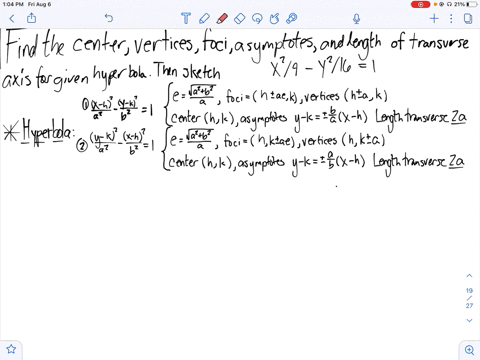 1:04 PM Fri Aug 6
21%
Find the center, vertices, foci, asymptotes, and length of transverse
axis for given hyperbola. Then sketch
x²/9 - y²/16 = 1
* Hyperbola:
① (x-h)²/a² - (y-k)²/b² = 1 { e = √(a²+b²)/a, foci = (h ± ae, k), vertices (h±a, k)
center (h, k), asymptotes y-k = ± b/a (x-h) Length transverse 2a
② (y-k)²/a² - (x-h)²/b² = 1 { e = √(a²+b²)/a, foci = (h, k±ae), vertices (h, k±a)
center (h, k), asymptotes y-k = ± a/b (x-h) Length transverse 2a
19
/
27